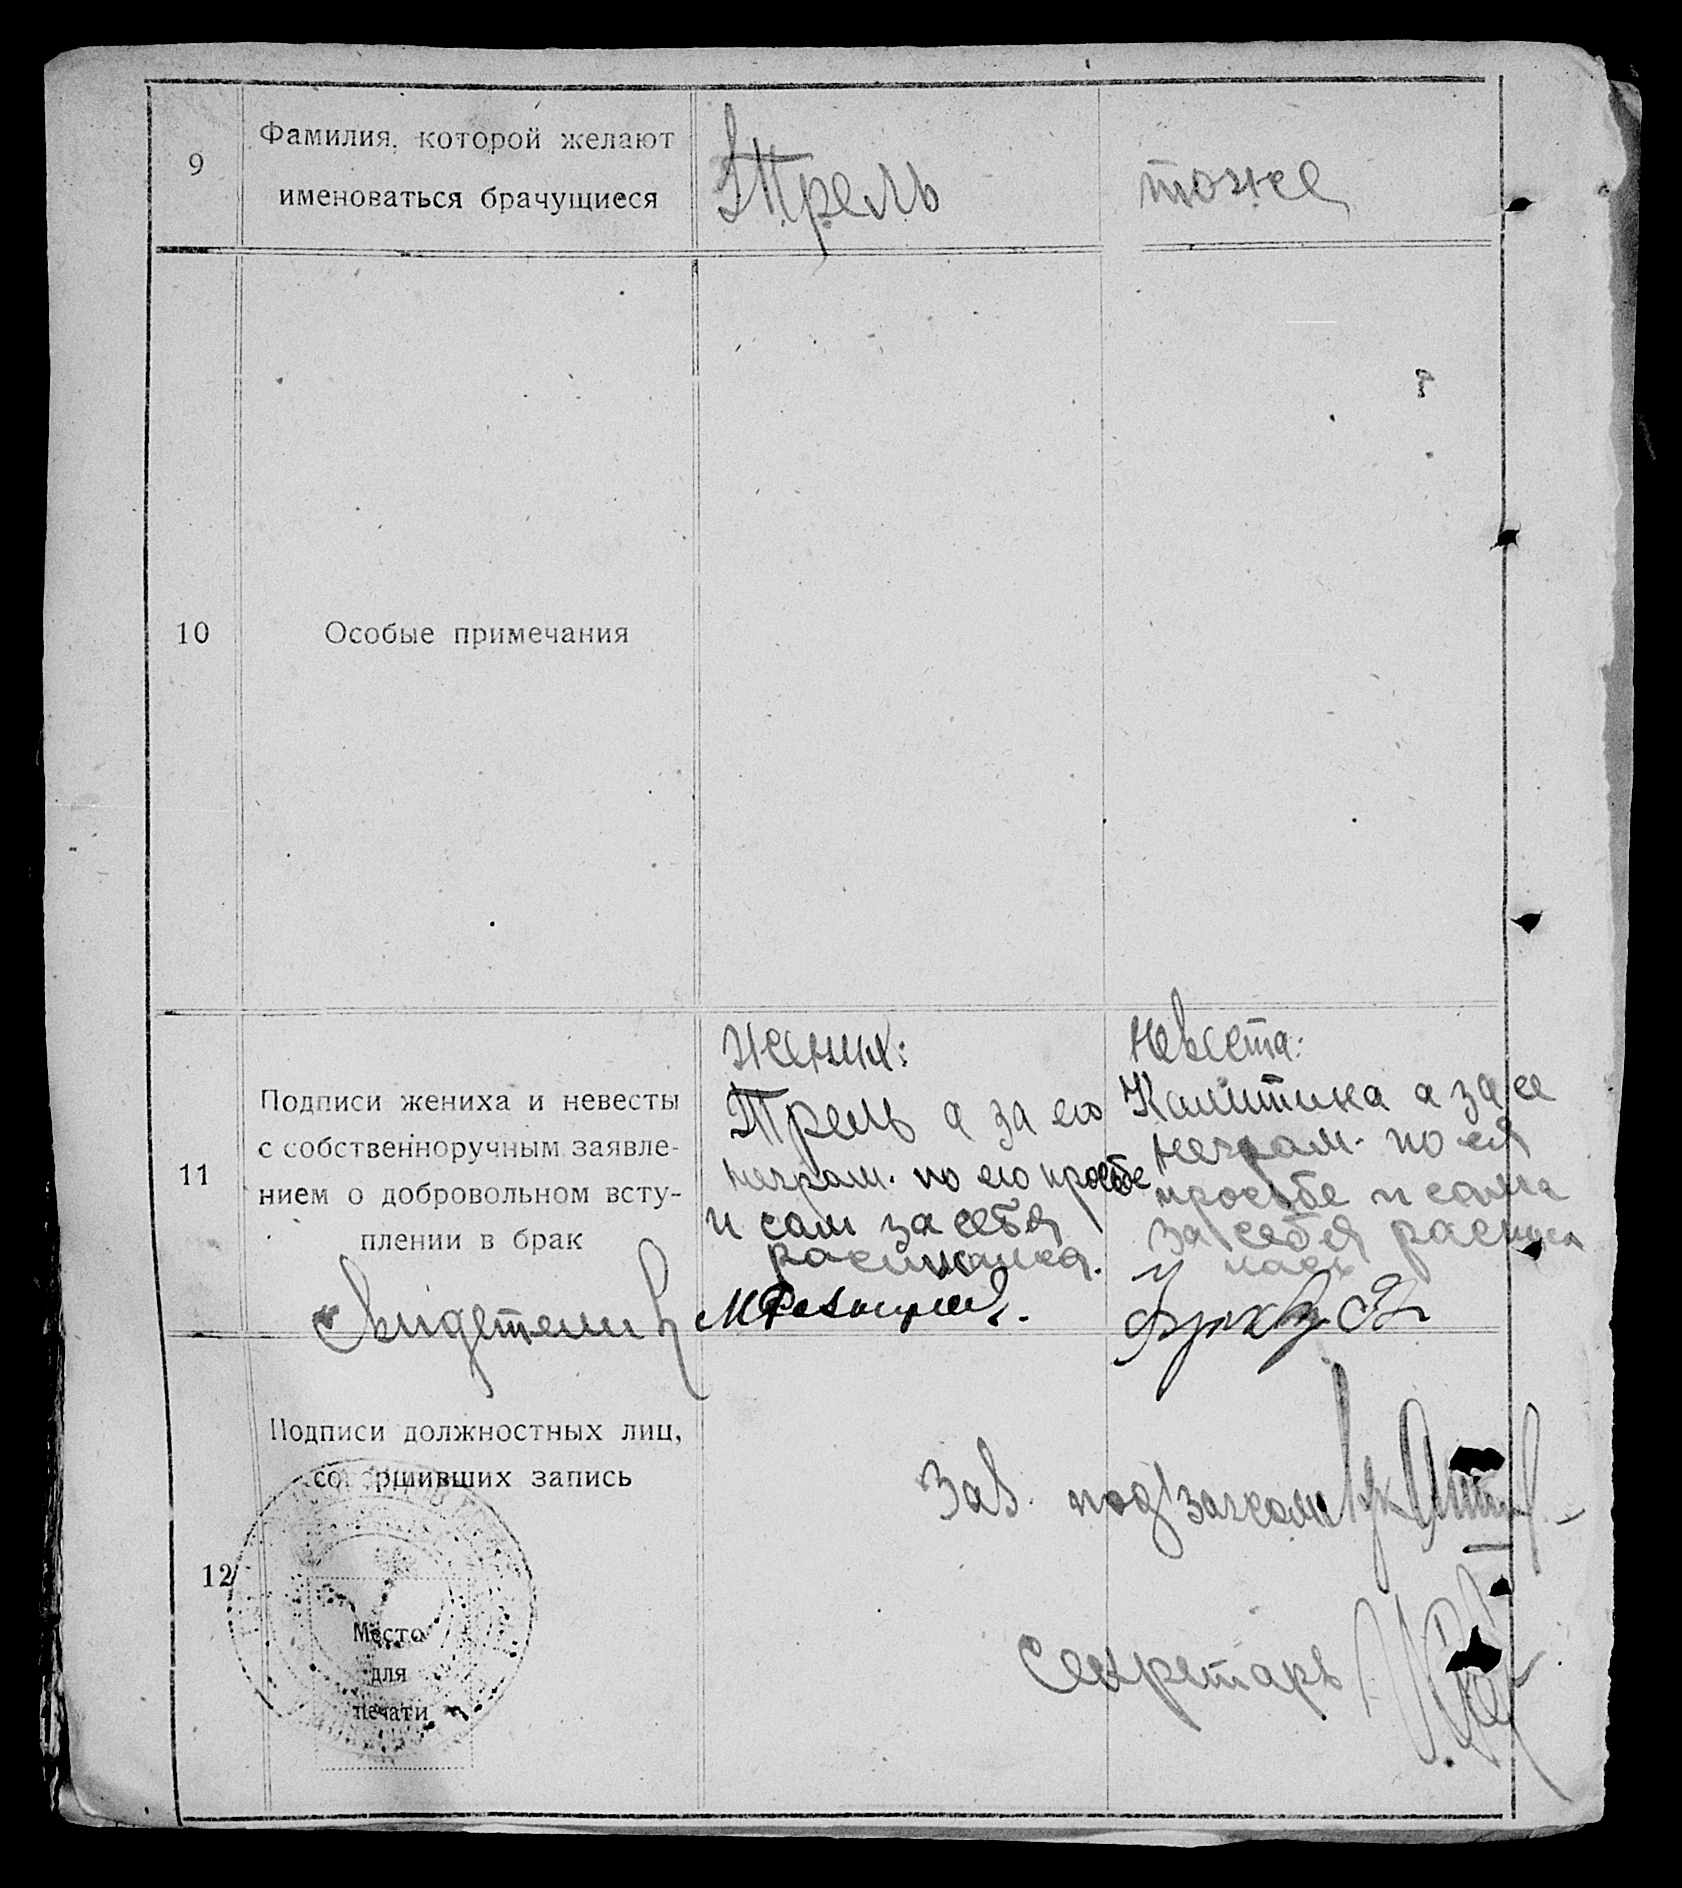 9
Фамилия, которой желают
именоваться брачущиеся
Трель
тоже
10
Особые примечания
11
Подписи жениха и невесты
с собственноручным заявле-
нием о добровольном всту-
плении в брак
Жених:
Трель а за его
неграм. по его просьбе
и сам за себя
расписался.
Невеста:
Калитина а за ее
неграм. по ея
просьбе и сама
за себя распис
Свидетели
12
Подписи должностных лиц,
совершивших запись
Место
для
печати
Зав. подзагсом
Секретарь